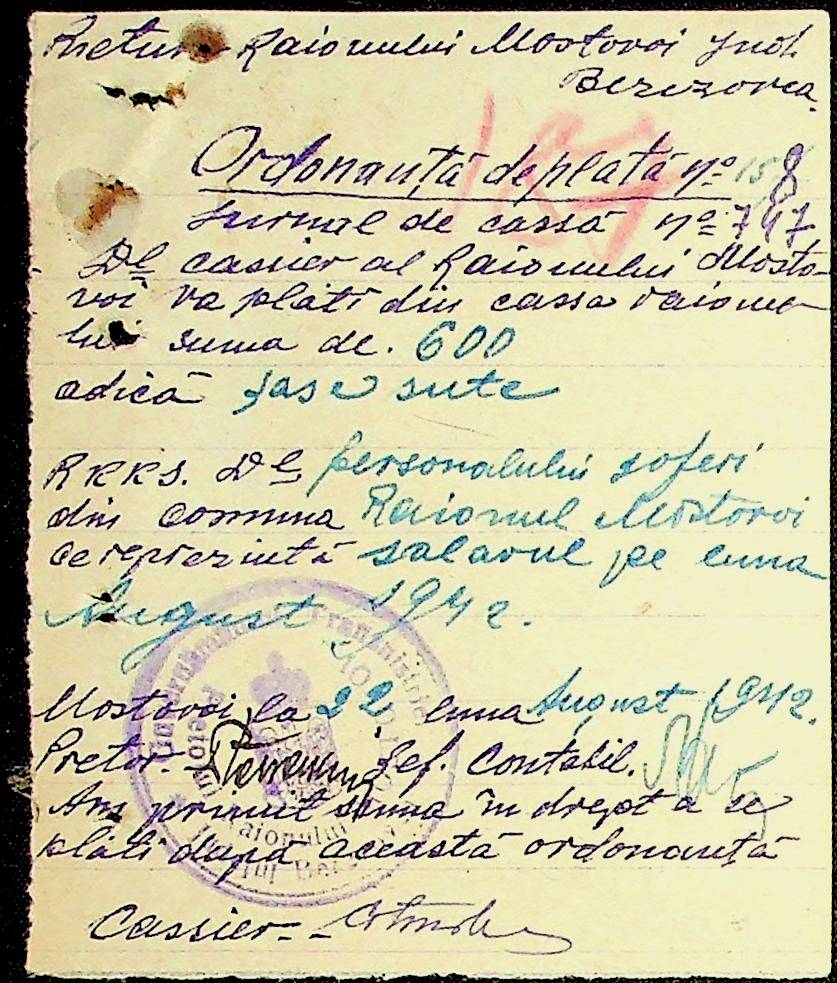 Pretura Raionului Mostovoi Jud.
Berezovca.
Ordonanță de plată № 158
Jurnal de cassă № 747
Dl cassier al Raionului Mosto-
voi va plăti din cassa raionu-
lui suma de. 600
adică șase sute
RKKS. Dl personalului șoferi
din comuna Raionul Mostovoi
ce reprezintă salarul pe luna
August 1942.
Mostovoi, la 22 luna August 1942.
Pretor. Șef. Contabil.
Am primit suma în drept a se
plăti după această ordonanță
Cassier